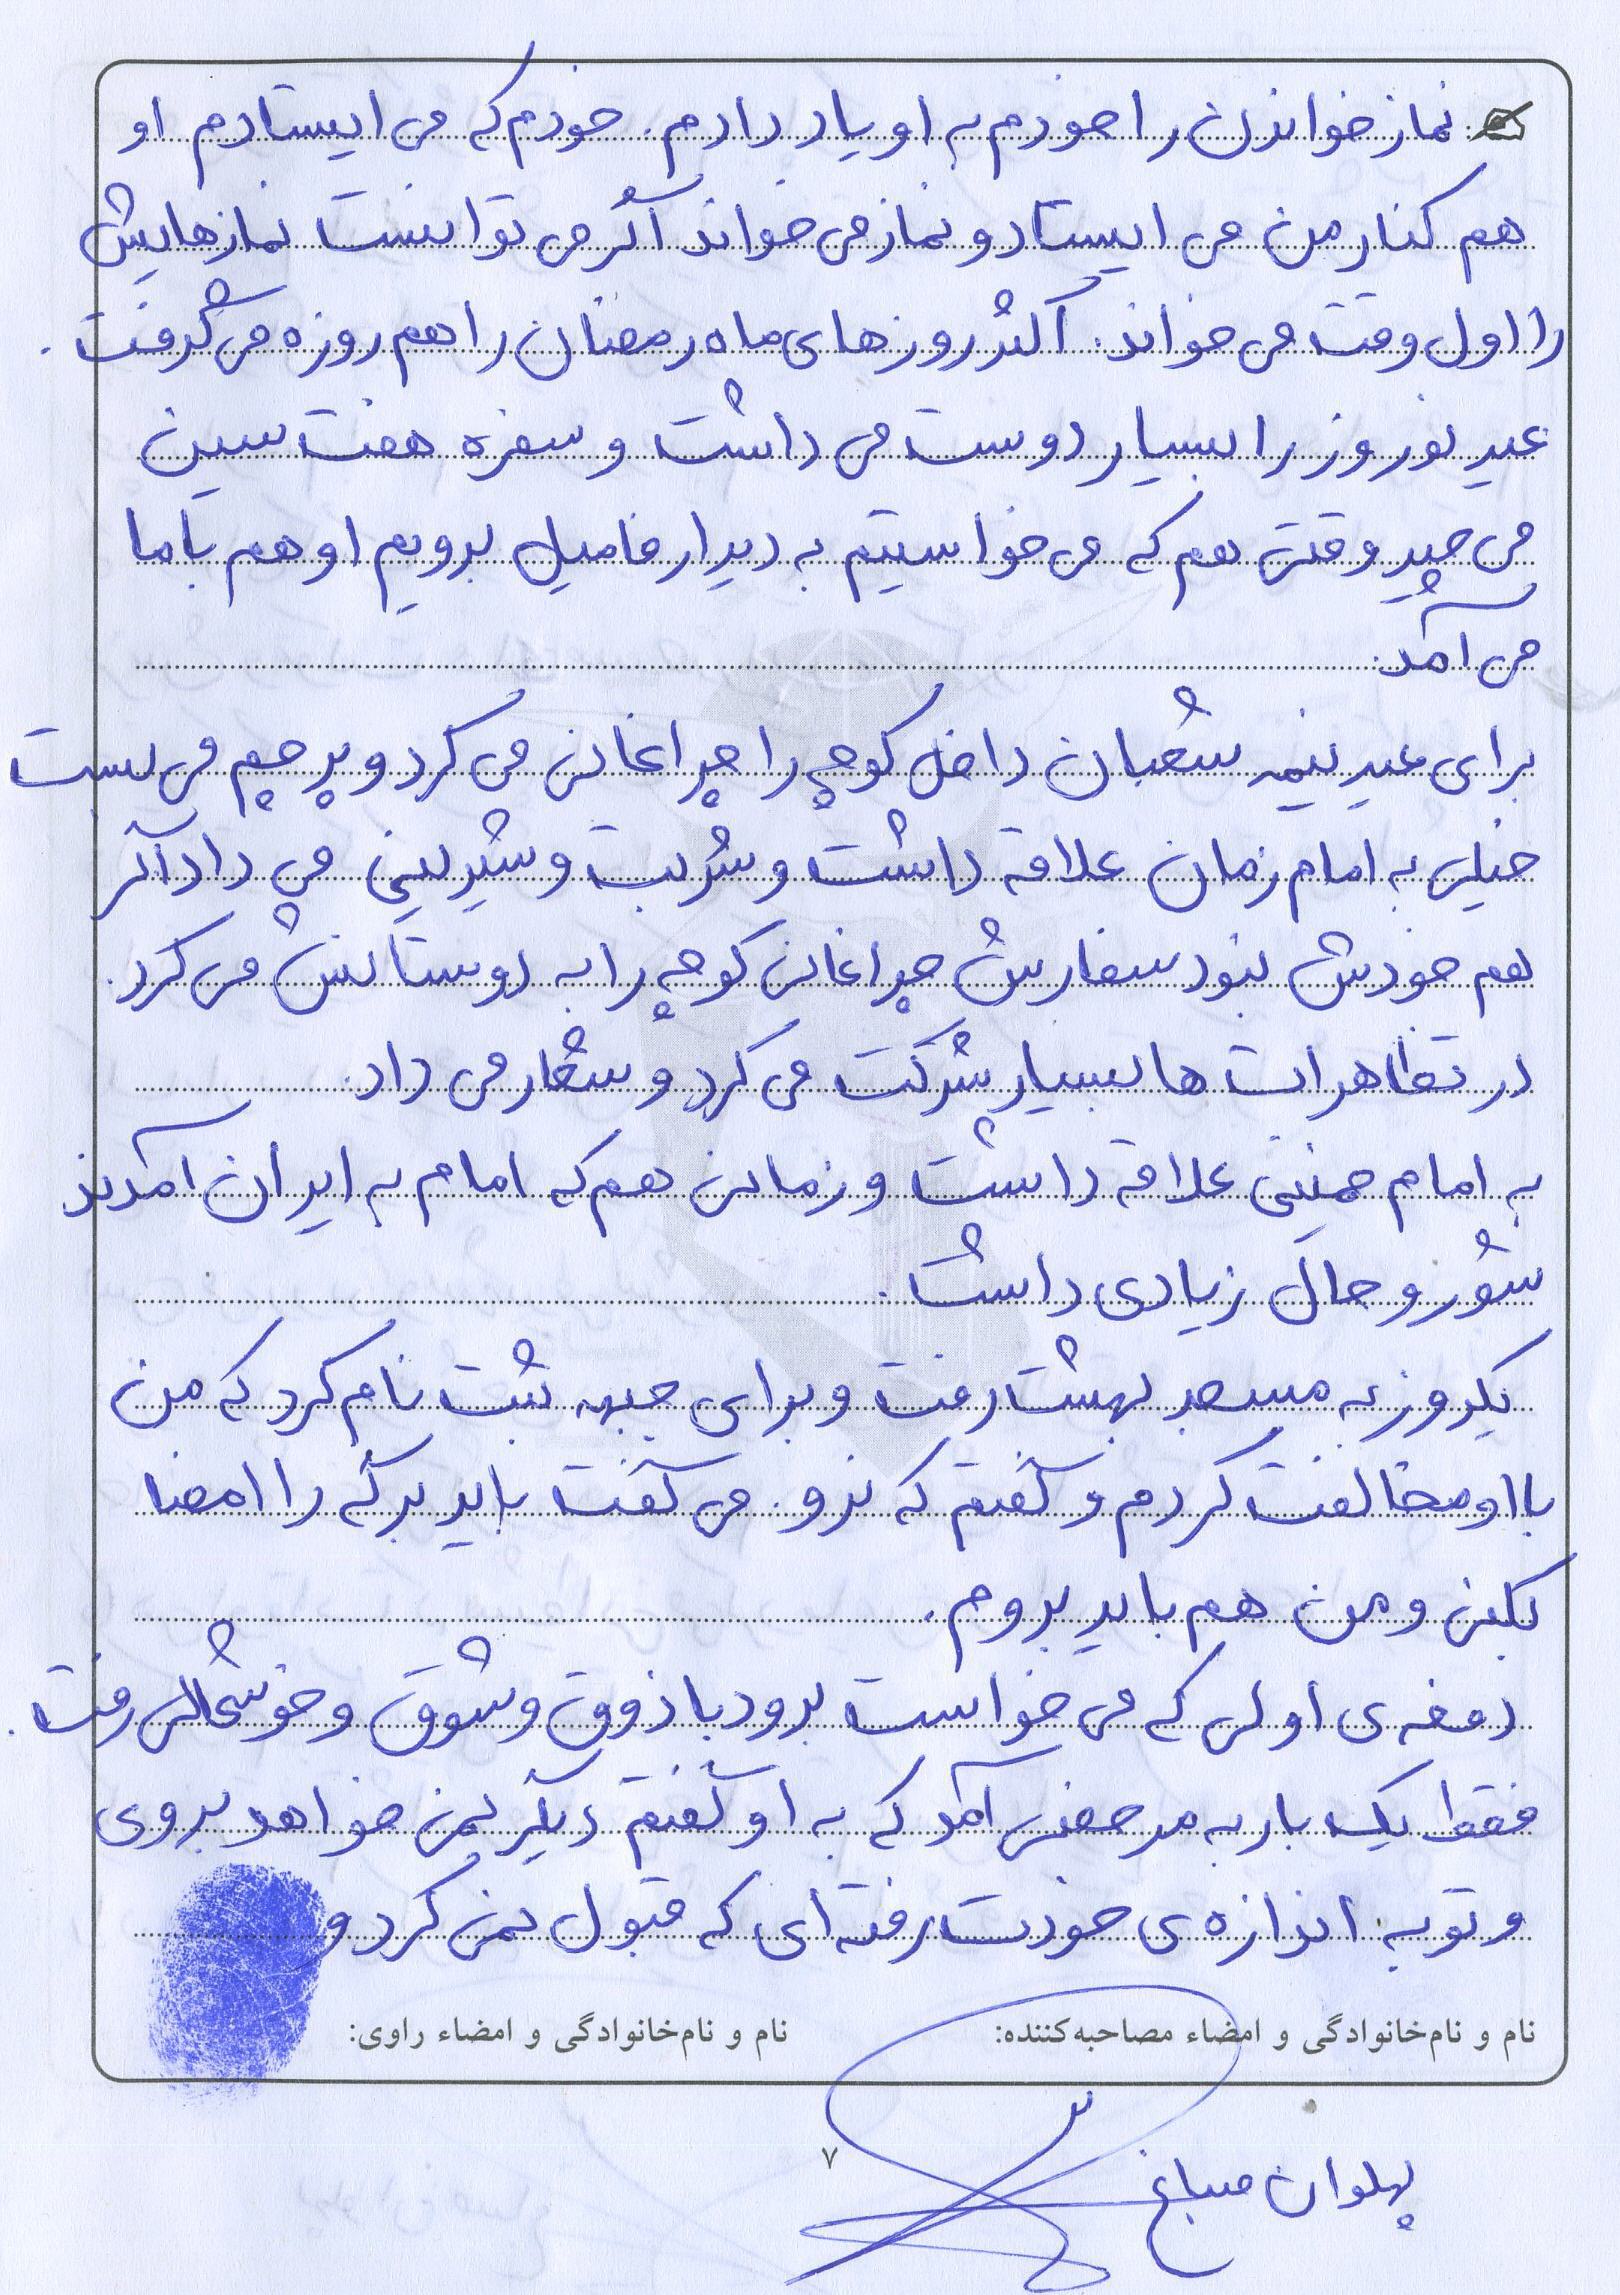 نماز خواندن را خودم به او یاد دادم. خودم که می ایستادم او
هم کنار من می ایستاد و نماز می خواند اگر می توانست نمازهایش
را اول وقت می خواند. اکثر روزهای ماه رمضان را هم روزه می گرفت.
عید نوروز را بسیار دوست می داشت و سفره هفت سین
می چید وقتی هم که می خواستیم به دیدار فامیل برویم او هم با ما
می آمد.
برای عید نیمه شعبان داخل کوچه را چراغانی می کرد و پرچم می بست
خیلی به امام زمان علاقه داشت و شربت و شیرینی می داد اگر
هم خودش نبود سفارش چراغانی کوچه را به دوستانش می کرد.
در تظاهرات ها بسیار شرکت می کرد و شعار می داد.
به امام خمینی علاقه داشت و زمانی هم که امام به ایران آمدند
شور و حال زیادی داشت.
یکروز به مسجد بهشت رفت و برای جبهه ثبت نام کرد که من
با او مخالفت کردم و گفتم که نرو. می گفت باید برگه را امضا
بکنی و من هم باید بروم.
دفعه ی اولی که می خواست برود با ذوق و شوق و خوشحالی رفت.
فقط یک بار به مرخصی آمد که به او گفتم دیگر نمی خواهد بروی
و تو به اندازه ی خودت رفته ای که قبول نمی کرد و
نام و نام‌خانوادگی و امضاء مصاحبه‌کننده: نام و نام‌خانوادگی و امضاء راوی:
پهلوان صباغ
۷